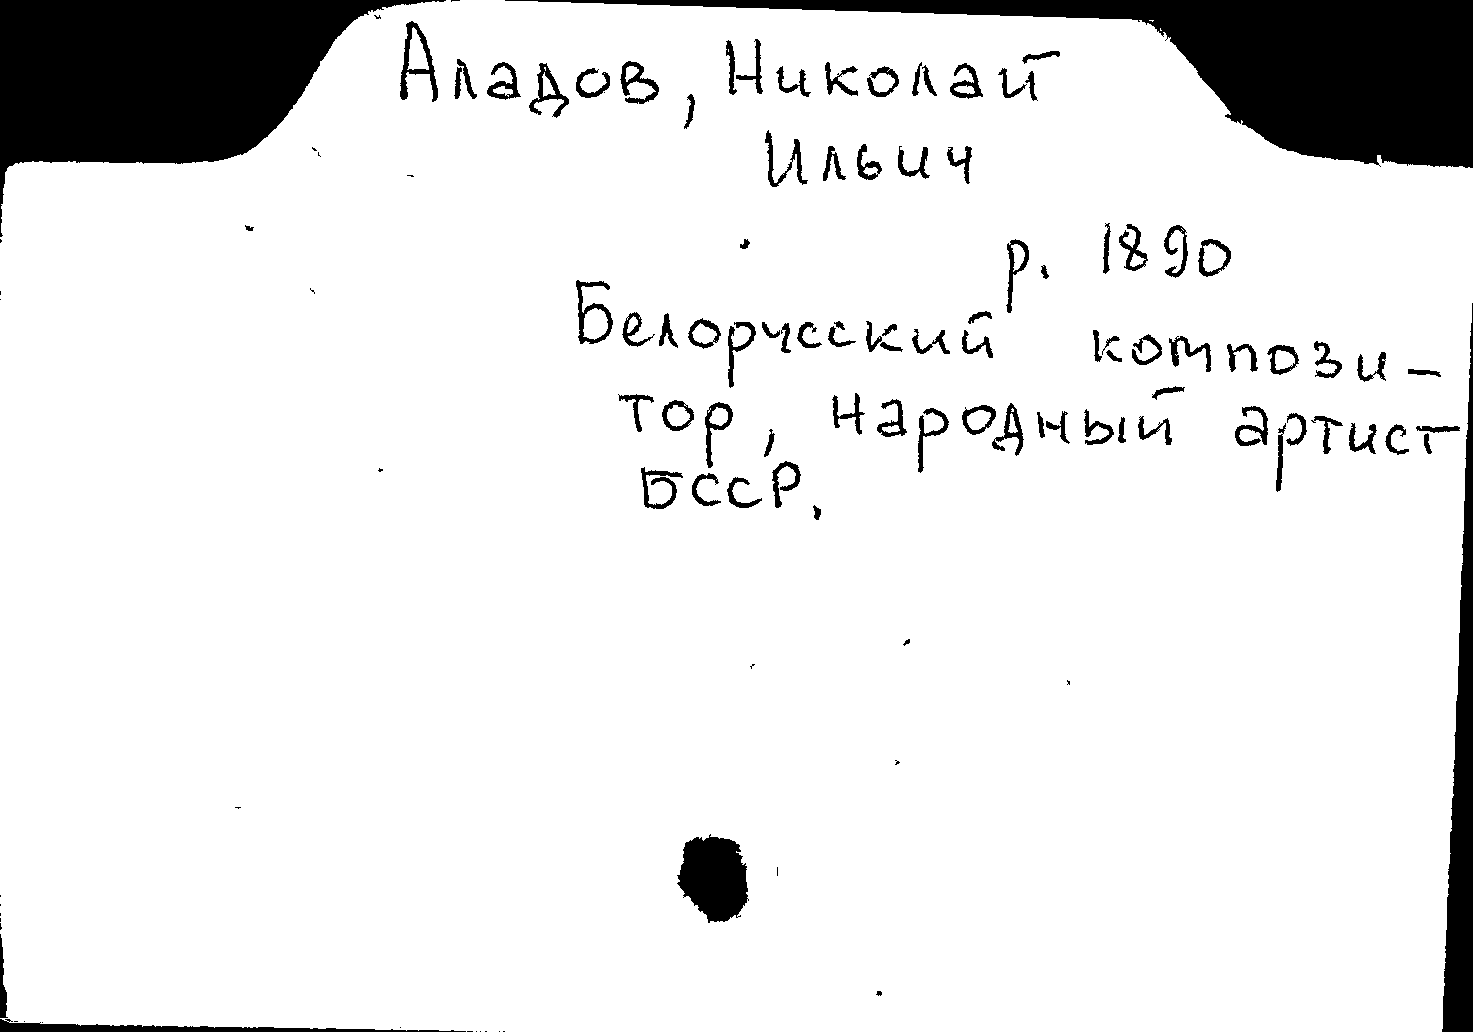 Аладов, Николай
Ильич
р. 1890
Белорусский компози-
тор, народный артист
БССР.